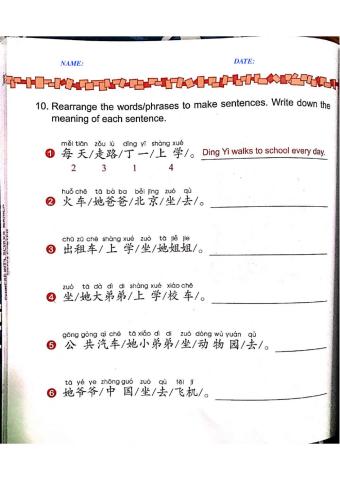 NAME: DATE:
10. Rearrange the words/phrases to make sentences. Write down the
meaning of each sentence.
měi tiān zǒu lù dīng yī shàng xué
1 每天/走路/丁一/上学/。 Ding Yi walks to school every day.
2 3 1 4
huǒ chē tā bà ba běi jīng zuò qù
2 火车/她爸爸/北京/坐/去/。
chū zū chē shàng xué zuò tā jiě jie
3 出租车/上学/坐/她姐姐/。
zuò tā dà dì di shàng xué xiào chē
4 坐/她大弟弟/上学/校车/。
gōng gòng qì chē tā xiǎo dì di zuò dòng wù yuán qù
5 公共汽车/她小弟弟/坐/动物园/去/。
tā yé ye zhōng guó zuò qù fēi jī
6 她爷爷/中国/坐/去/飞机/。